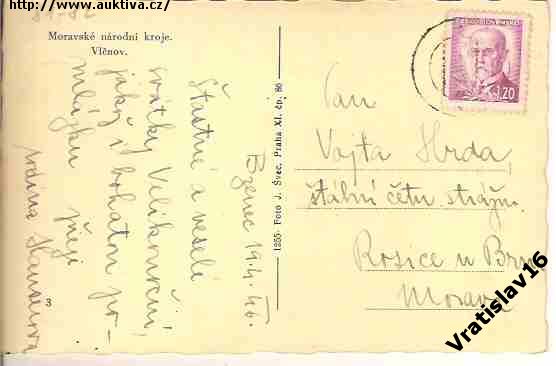 http://www.auktiva.cz/
31-32
Moravské národní kroje.
Vlčnov.
ČESKOSLOVENSKO
K 1,20
Šťastné a veselé
svátky Velikonoční,
jakož i bohatou po-
mlázku přeje
rodina
Bzenec 19.4.46.
1255 Foto J. Švec, Praha XI. čp. 80
3
Pan
Vojta Hrda,
štábní četn. strážm.
Rosice u Brna
Morava
Vratislav16